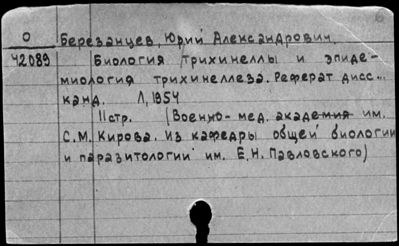 О
42089
Березанцев, Юрий Александрович.
Биология трихинеллы и эпиде-
миология трихинеллеза. Реферат дисс...
канд. Л, 1954
11стр. (Военно-мед. академия им.
С.М. Кирова. Из кафедры общей биологии
и паразитологии им. Е.Н. Павловского)